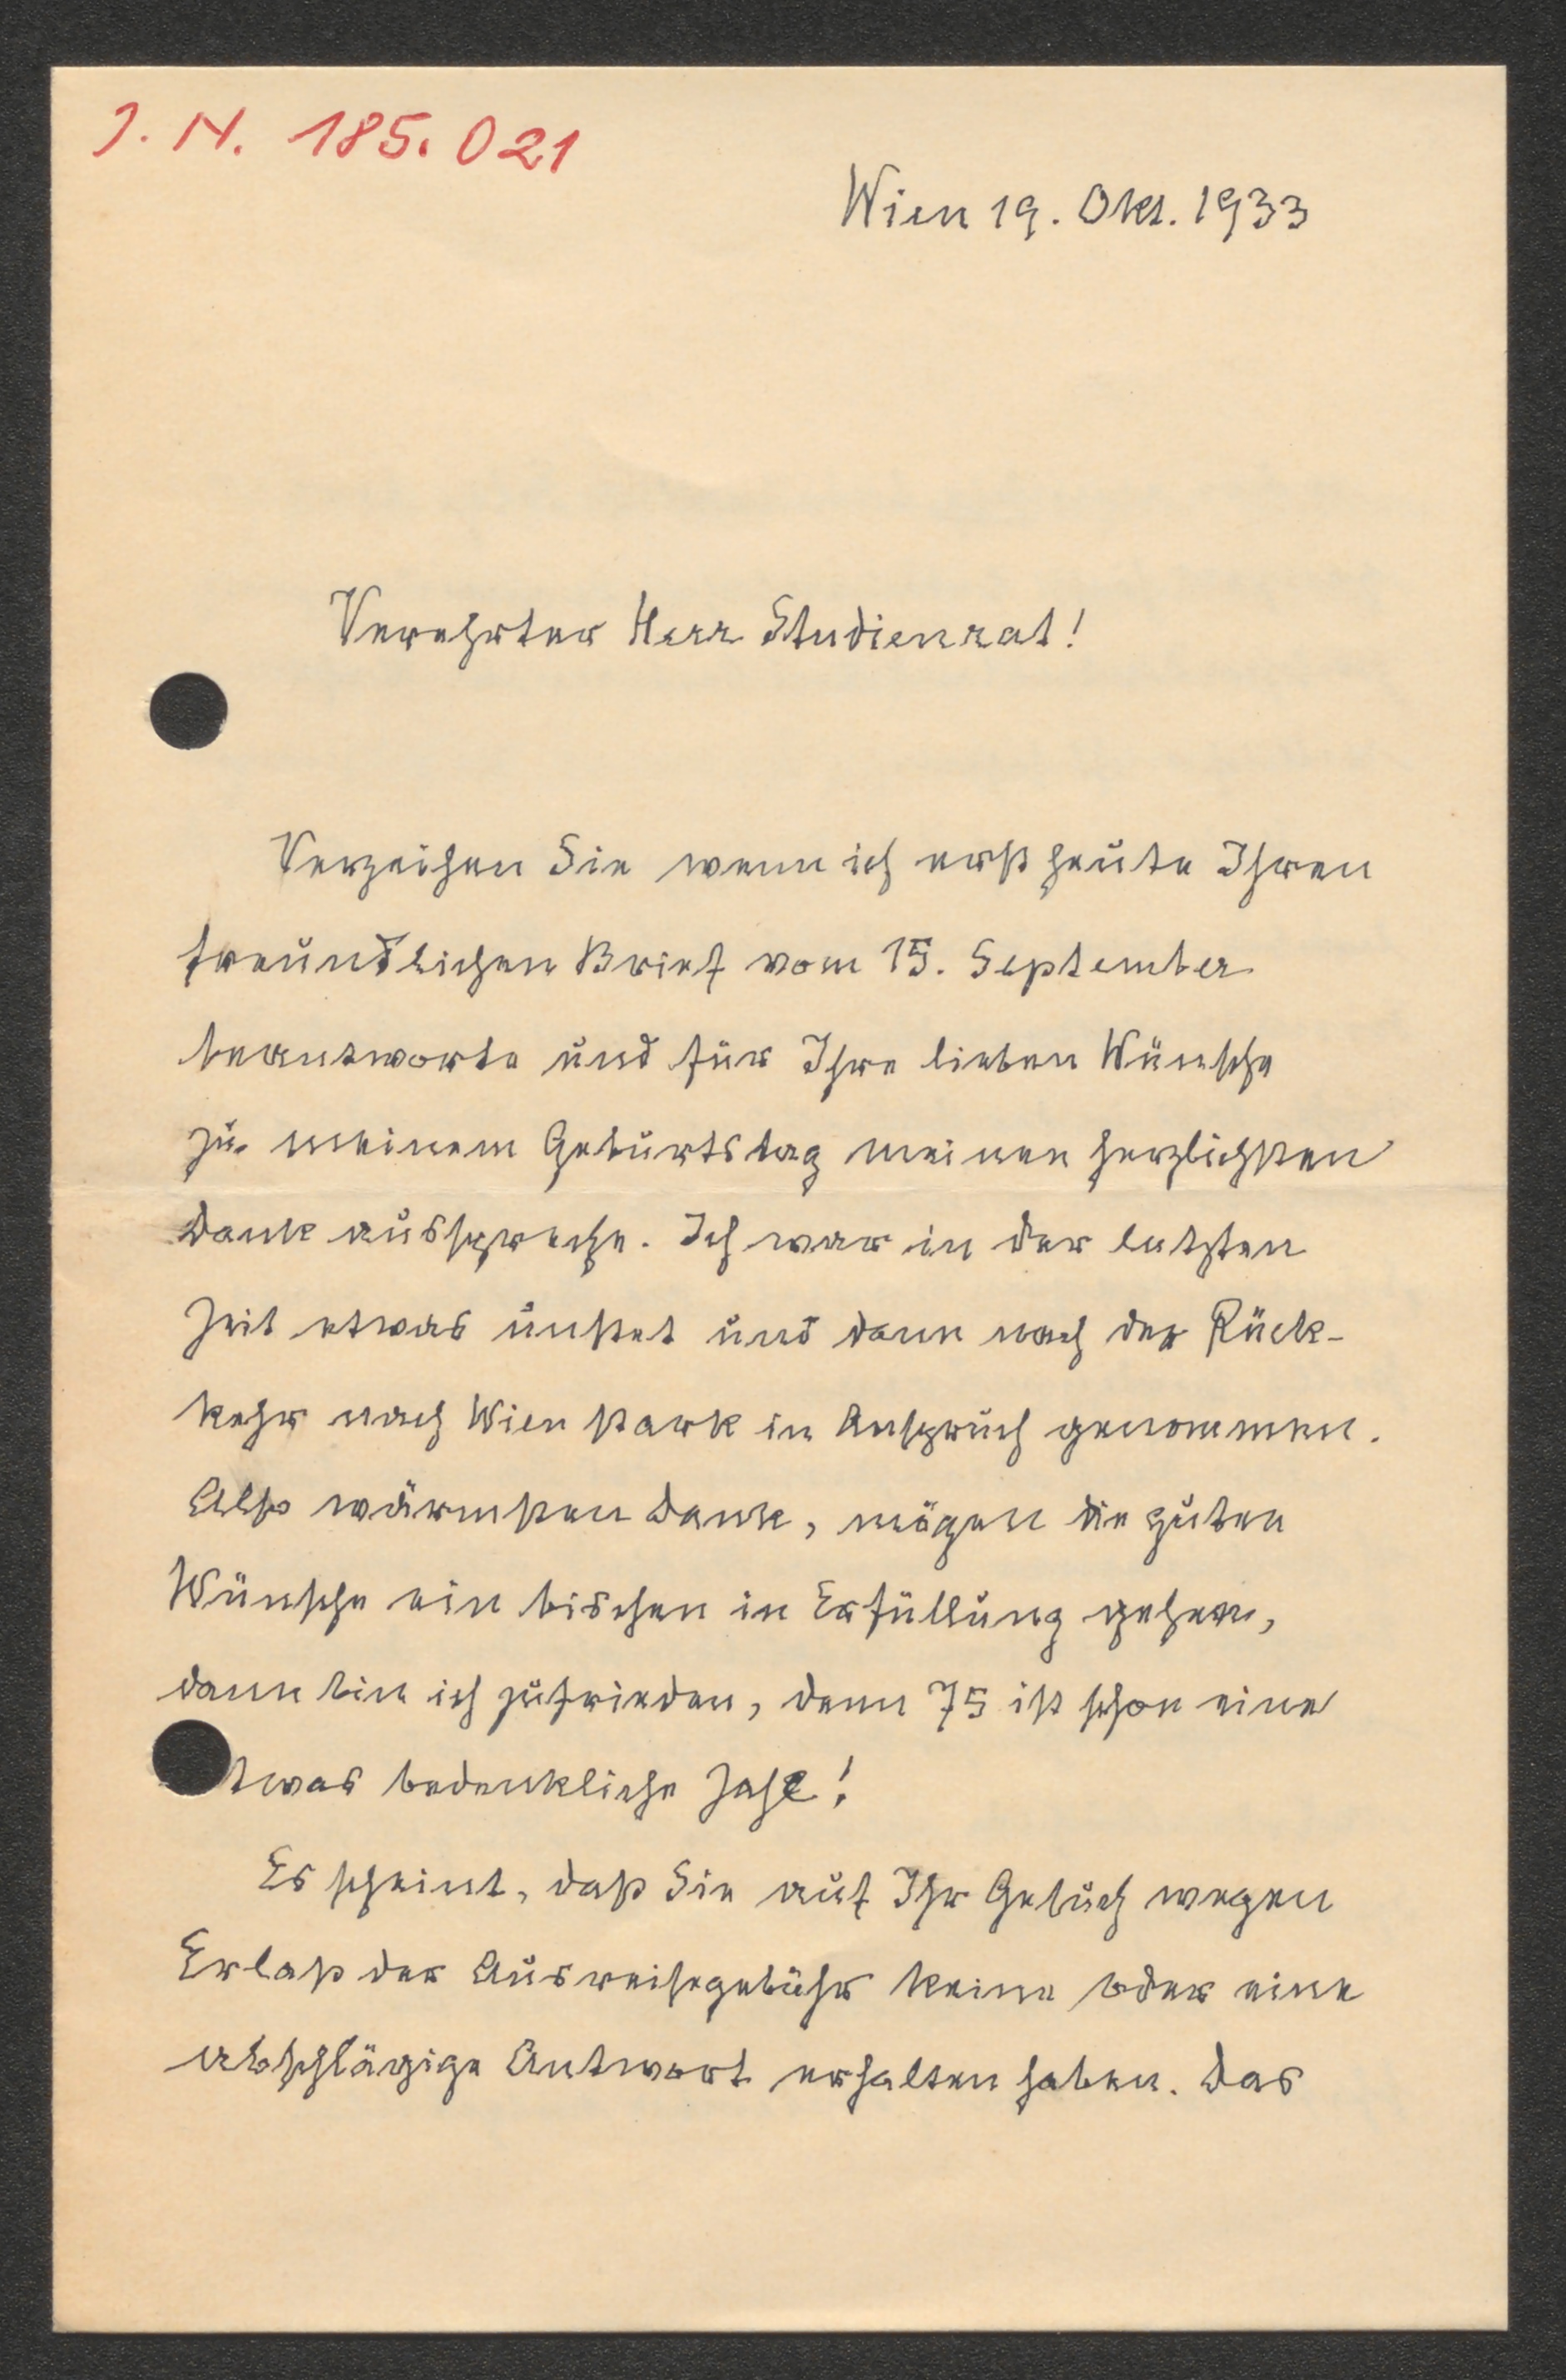 J. N. 185.021
Wien 19. Okt. 1933
Verehrter Herr Studienrat!
Verzeihen Sie wenn ich erst heute Ihren
freundlichen Brief vom 15. September
beantworte und für Ihre lieben Wünsche
zu meinem Geburtstag meinen herzlichsten
Dank ausspreche. Ich war in der letzten
Zeit etwas unstet und dann nach der Rück-
kehr nach Wien stark in Anspruch genommen.
Also wärmsten Dank, mögen die guten
Wünsche ein bischen in Erfüllung gehen,
dann bin ich zufrieden, denn 75 ist schon eine
twas bedenkliche Zahl!
Es scheint, daß Sie auf Ihr Gesuch wegen
Erlaß der Ausreisegebühr keine oder eine
abschlägige Antwort erhalten haben. Das